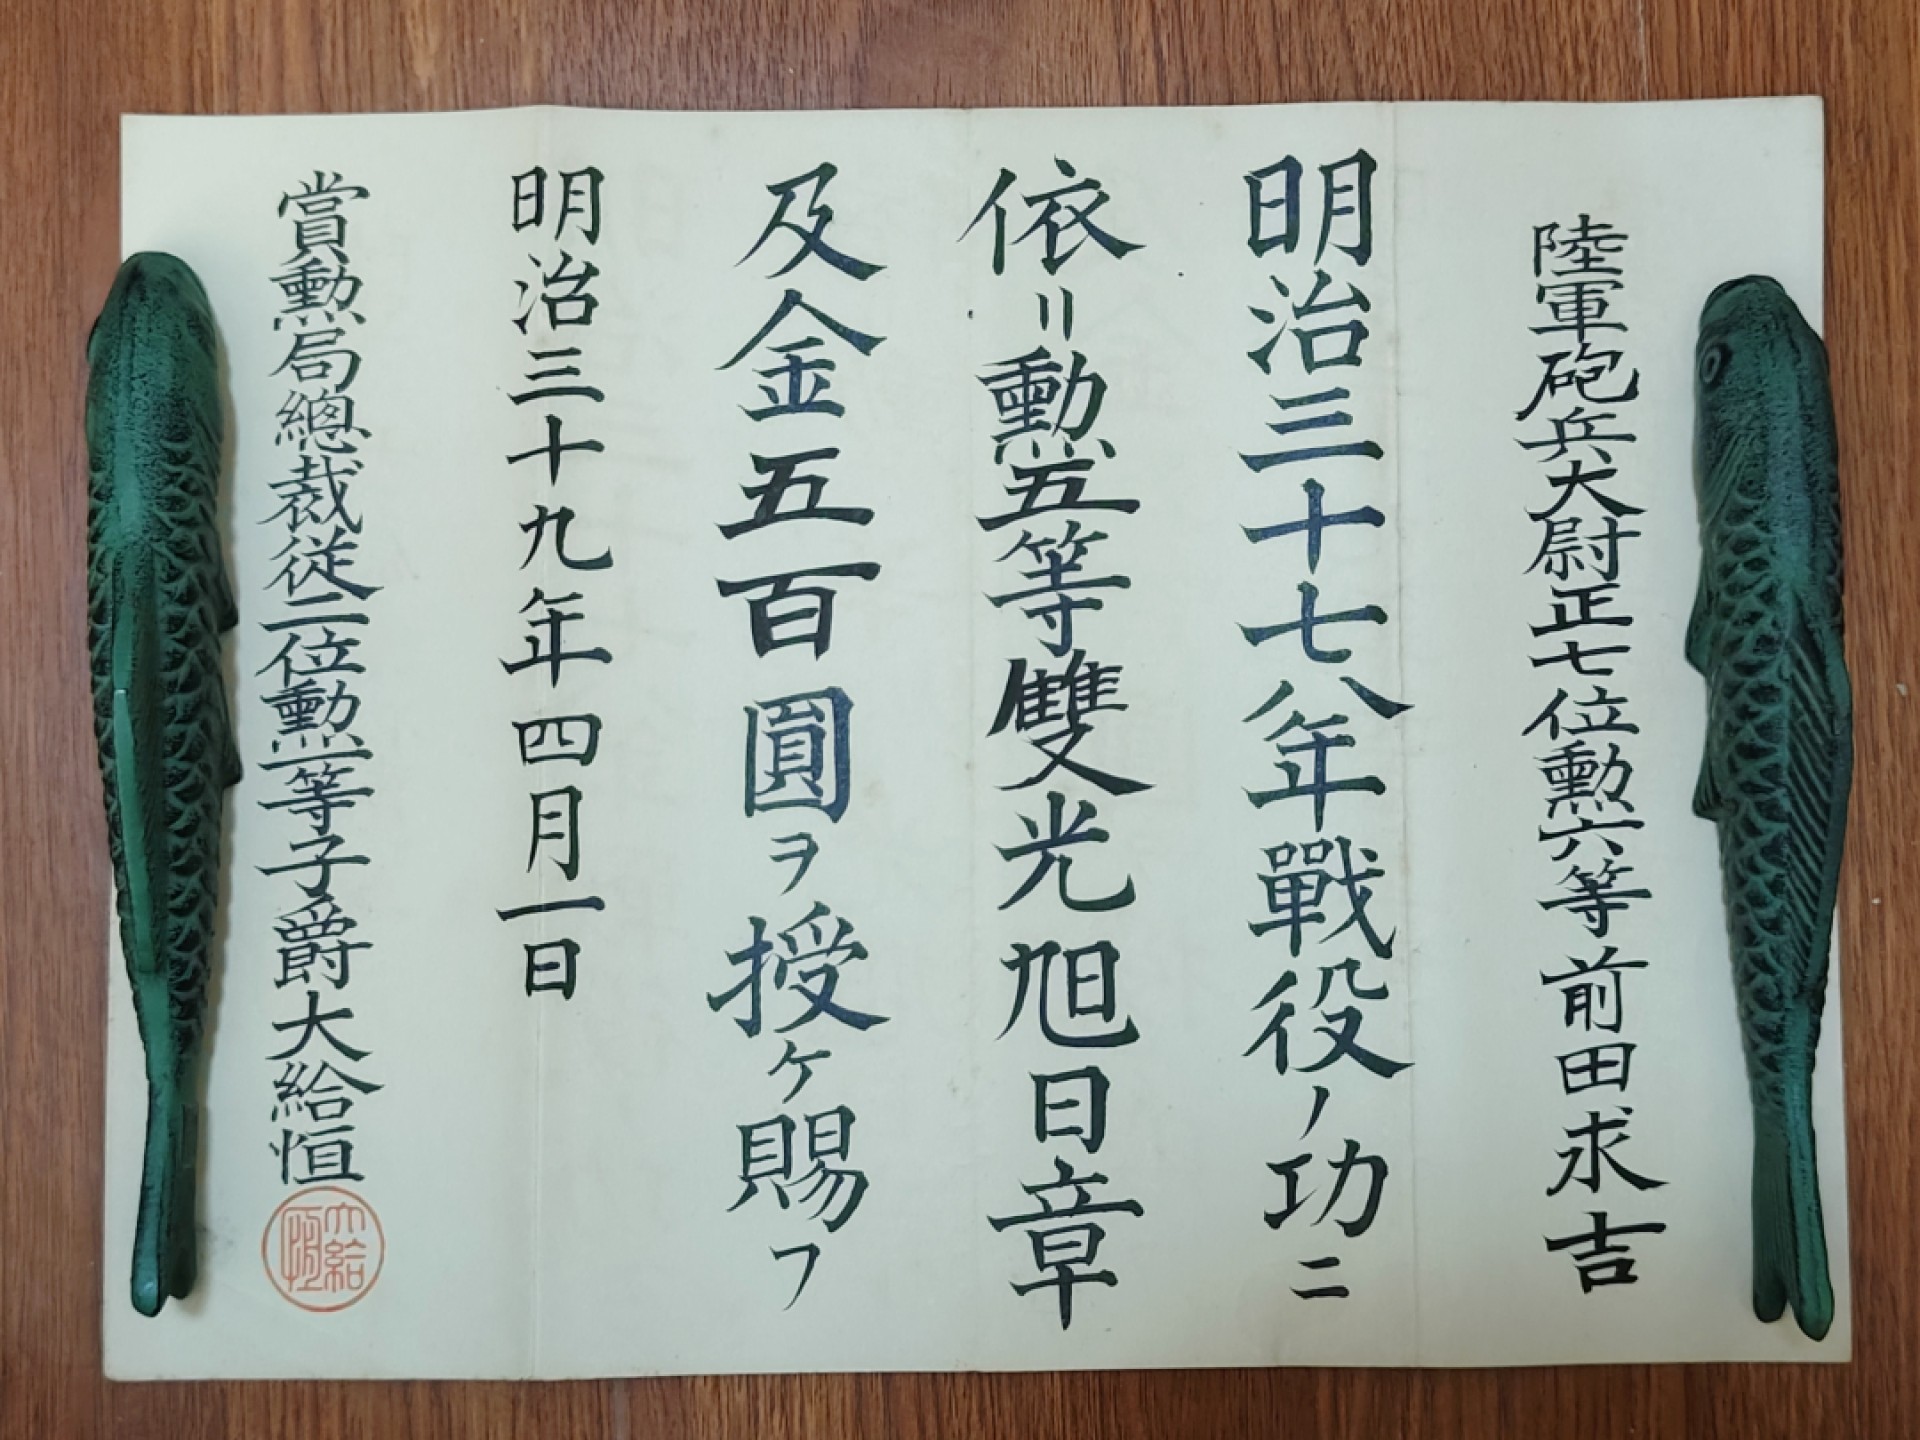 陸軍砲兵大尉正七位勲六等前田求吉
明治三十七八年戰役ノ功ニ
依リ勲五等雙光旭日章
及金五百圓ヲ授ケ賜フ
明治三十九年四月一日
賞勲局總裁従二位勲一等子爵大給恒
大給恒